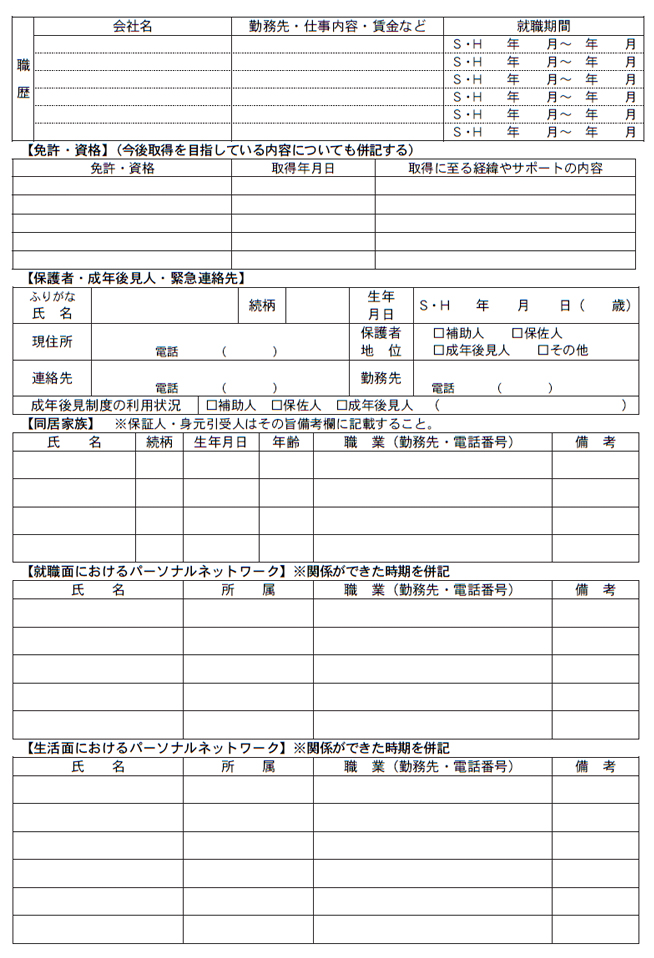 会社名 勤務先・仕事内容・賃金など 就職期間
職歴
S・H 年 月～ 年 月
S・H 年 月～ 年 月
S・H 年 月～ 年 月
S・H 年 月～ 年 月
S・H 年 月～ 年 月
S・H 年 月～ 年 月
【免許・資格】（今後取得を目指している内容についても併記する）
免許・資格 取得年月日 取得に至る経緯やサポートの内容
【保護者・成年後見人・緊急連絡先】
ふりがな
氏 名 続柄 生年月日 S・H 年 月 日（ 歳）
現住所 電話 （ ） 保護者地 位 □補助人 □保佐人
□成年後見人 □その他
連絡先 電話 （ ） 勤務先 電話 （ ）
成年後見制度の利用状況 □補助人 □保佐人 □成年後見人 （ ）
【同居家族】 ※保証人・身元引受人はその旨備考欄に記載すること。
氏 名 続柄 生年月日 年齢 職 業（勤務先・電話番号） 備 考
【就職面におけるパーソナルネットワーク】※関係ができた時期を併記
氏 名 所 属 職 業（勤務先・電話番号） 備 考
【生活面におけるパーソナルネットワーク】※関係ができた時期を併記
氏 名 所 属 職 業（勤務先・電話番号） 備 考